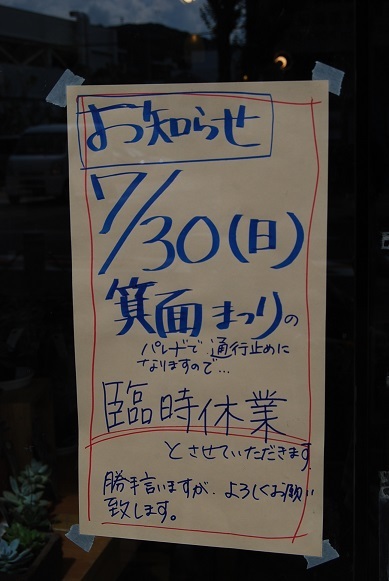 お知らせ
7/30(日)
箕面まつりの
パレードで通行止めに
なりますので…
臨時休業
とさせていただきます
勝手言いますが、よろしくお願い
致します。